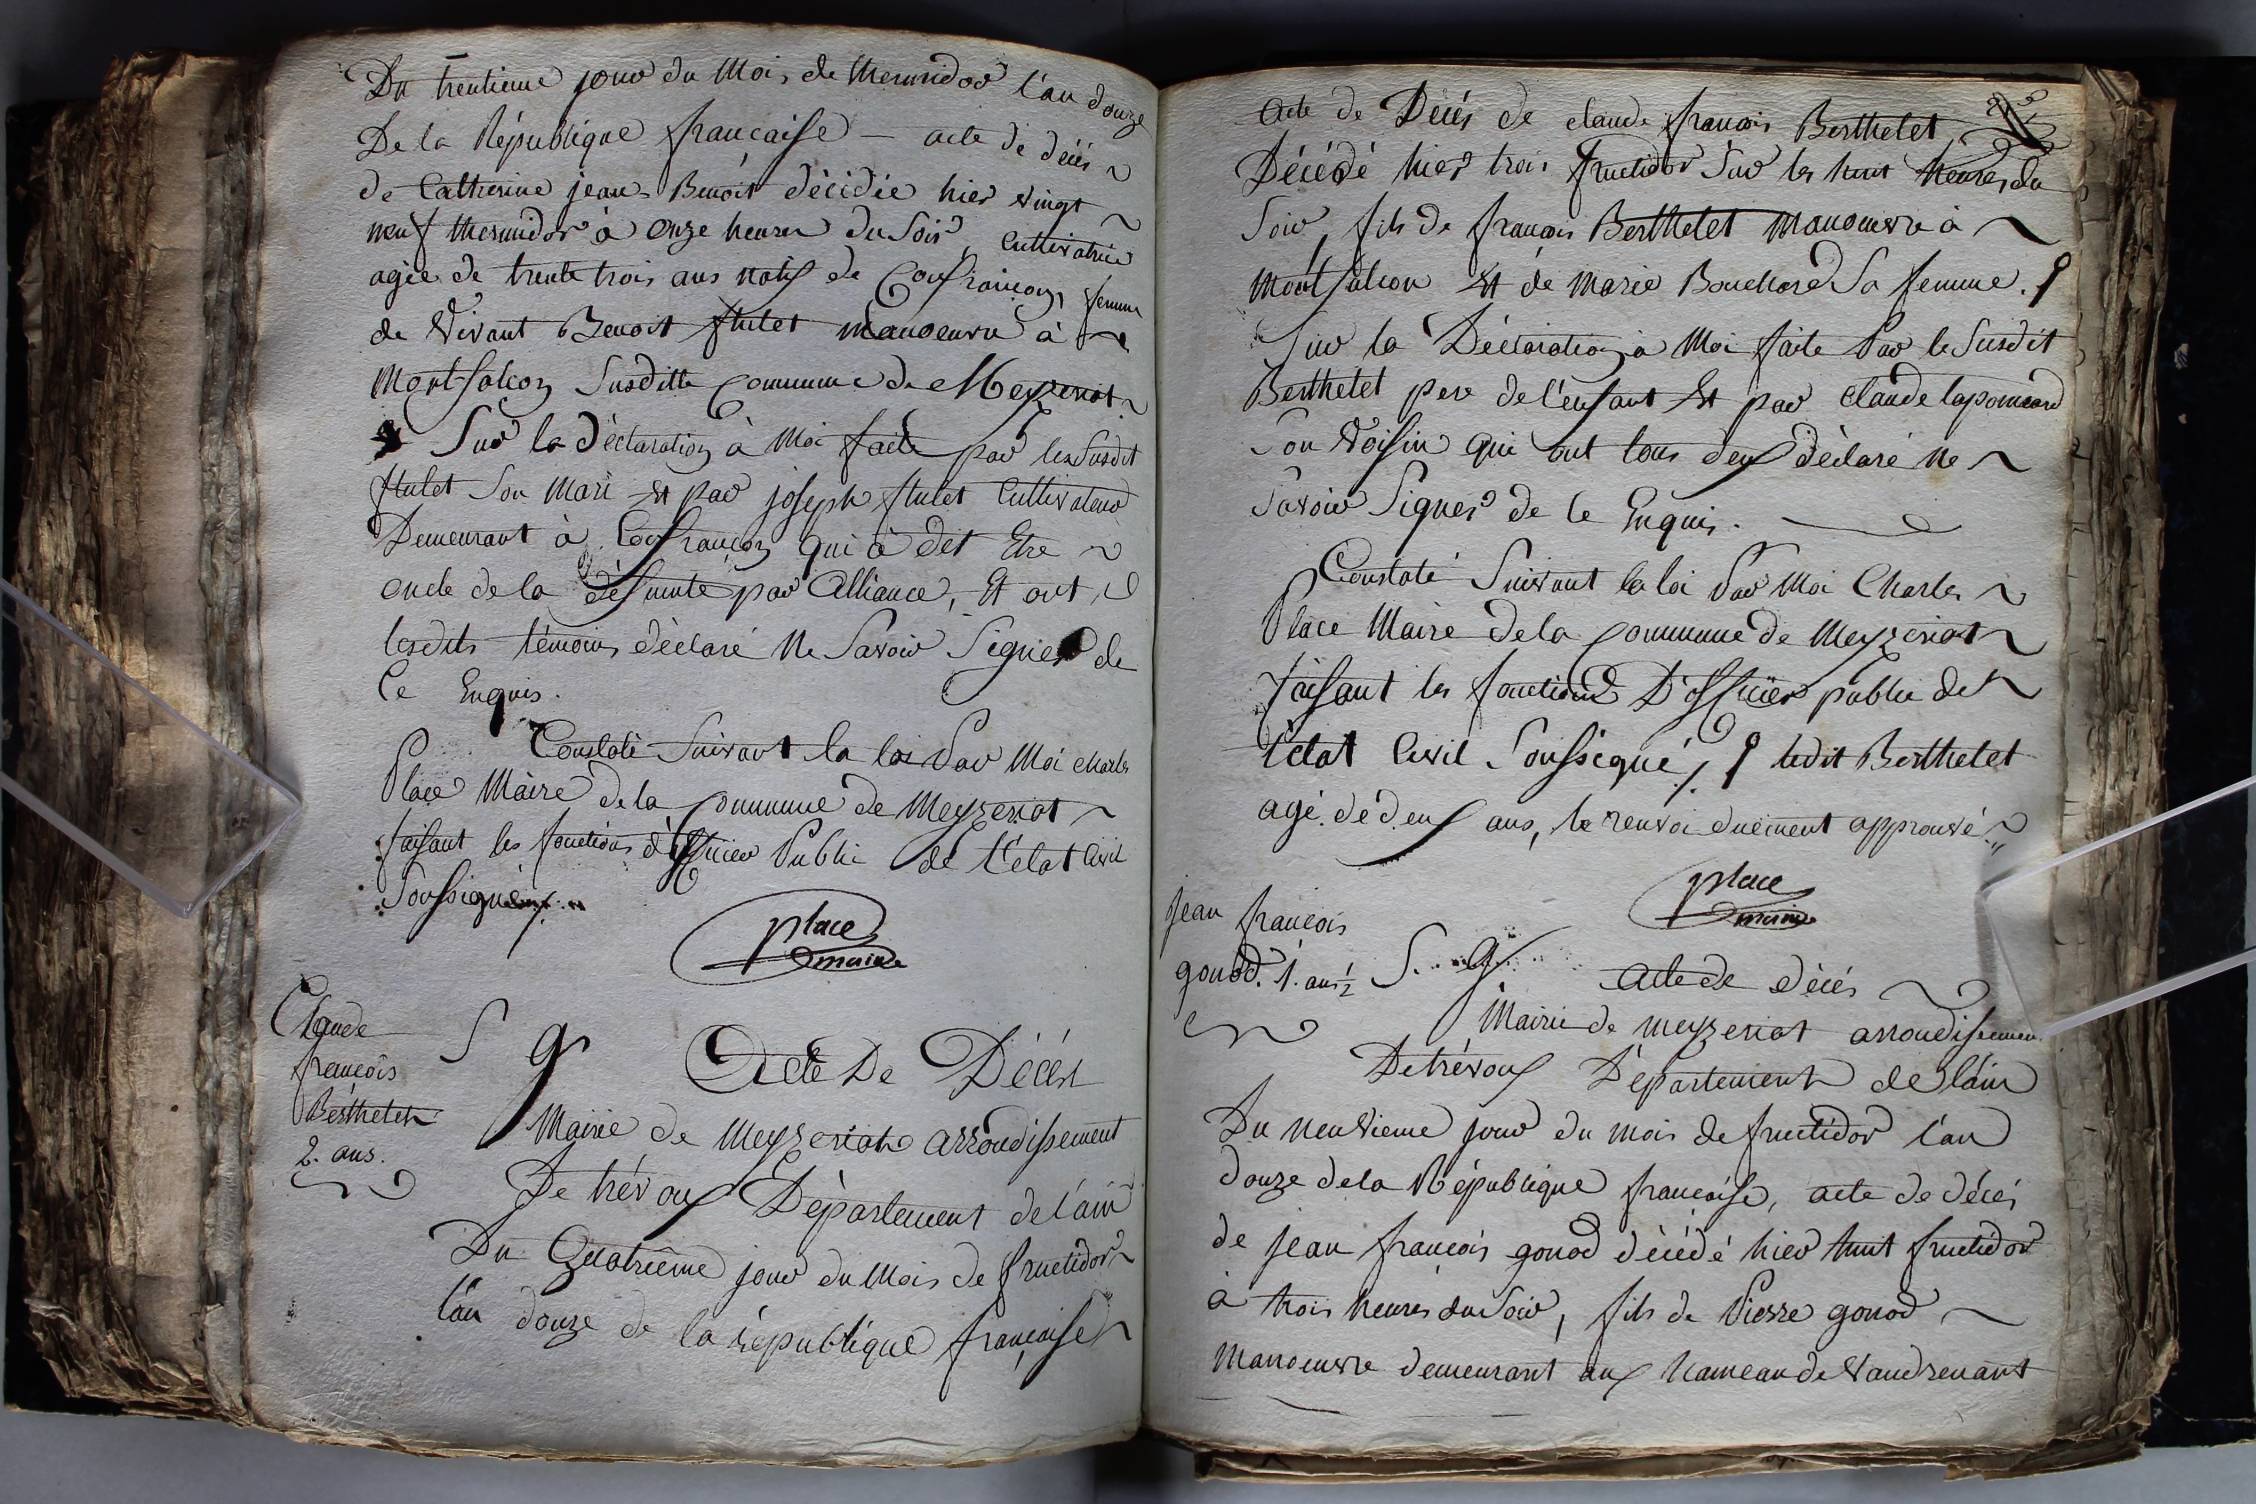 Du trentieme jour du Mois de thermidor l'an douze
De la République française — acte de décés
de Catherine jean-Benoit décidée hier vingt
neuf thermidor à onze heures du Soir, Cultivatrice
agée de trente trois ans natif de Confrançon, femme
de Vivant Benoit flulet manoeuvre à
Montfalcon Susditte Commune de Meyzeriat.
Sur la déclaration à Moi faite par le Susdit
flulet Son Mari Et par joseph flulet Cultivateur
Demeurant à Confrançon qui à dit Etre
oncle de la défunte par Alliance, Et ont
lesdits témoins déclaré Ne Savoir Signer de
Ce Enquis.
Constaté Suivant la loi Par Moi charles
Place Maire de la Commune de Meyzeriat
faisant les fonctions d'officier Public de l'état Civil
Soussigné
place
maire
Claude
francois
Berthelet
2. ans.
S 9 Acte De Décés
Mairie de Meyzeriat arrondissement
De trévoux Département de l'ain
Du Quatrième jour du Mois de fructidor
l'an douze de la république française
Acte de Décés de claude françois Berthelet
Décédé hier trois fructidor Sur les huit heures du
Soir, fils de françois Berthelet manouvre à
Montfalcon Et de Marie Bouchard Sa femme.
Sur la Déclaration à Moi faite Par le Susdit
Berthelet pere de l'enfant Et par Claude lapomeard
Son Voisin qui ont tous deux déclaré ne
Savoir Signer de Ce Enquis.
Constaté Suivant la loi Par Moi Charles
Place Maire de la Commune de Meyzeriat
faisant les fonctions D'officier public de
l'état Civil Soussigné, ledit Berthelet
agé de deux ans, le renvoi duement approuvé
place
maire
Jean françois
gonod. 1. ans 1/2
S. 9 Acte de décés
Mairie de Meyzeriat arrondissement
De trévoux Département de l'ain
Du neuvieme jour du mois de fructidor l'an
douze de la République française, acte de décés
de jean françois gonod décédé hier huit fructidor
à trois heures du Soir, fils de Pierre gonod
manoeuvre demeurant aux hameau de Vandrenant